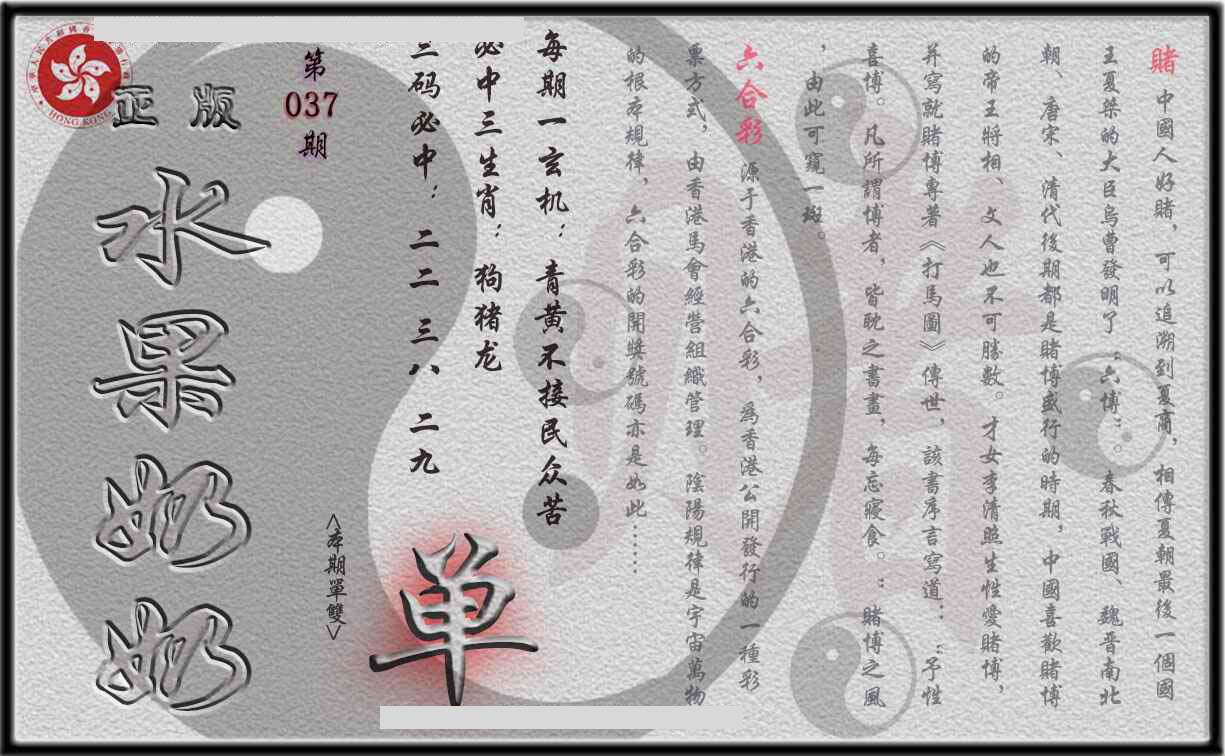 賭 中國人好賭，可以追溯到夏商，相傳夏朝最後一個國
王夏桀的大臣烏曹發明了“六博”。春秋戰國、魏晋南北
朝、唐宋、清代後期都是賭博盛行的時期，中國喜歡賭博
的帝王將相、文人也不可勝數。才女李清照生性愛賭博，
并寫就賭博專著《打馬圖》傳世，該書序言寫道：“予性
喜博。凡所謂博者，皆耽之晝，每忘寢食。”賭博之風
，由此可窺一斑。
六合彩 源于香港的六合彩，爲香港公開發行的一種彩
票方式，由香港馬會經營組織管理。陰陽規律是宇宙萬物
的根本規律，六合彩的開獎號碼亦是如此……
每期一玄机：青黄不接民众苦
必中三生肖：狗猪龙
三码必中：二二 三八 二九
第
037
期
<本期單雙>
单
正版
水果奶奶
HONG KONG